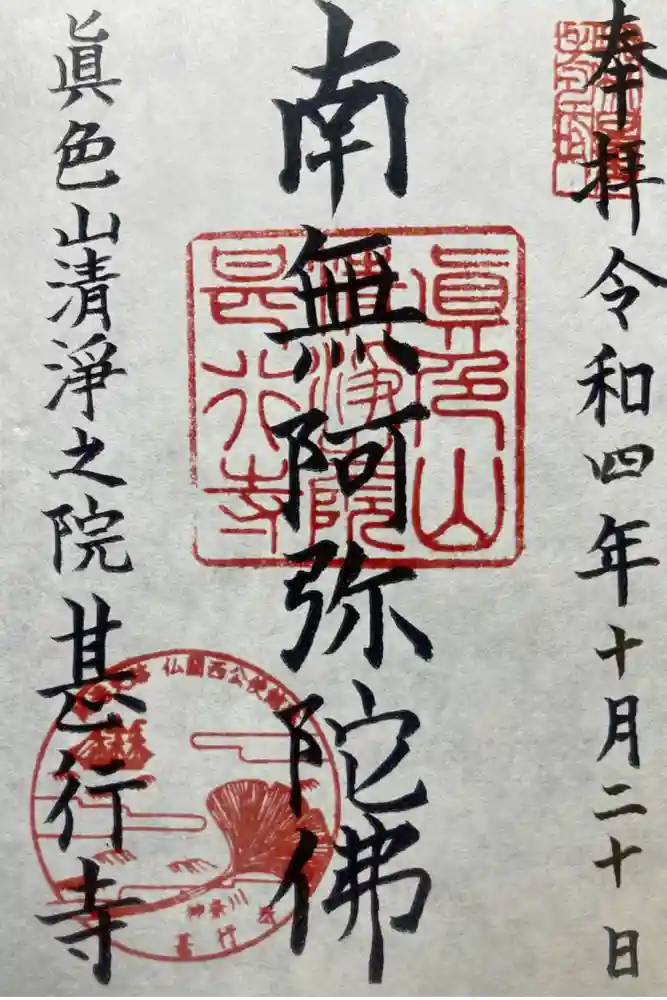 奉拝 令和四年十月二十日
南無阿弥陀佛
眞色山清淨之院 甚行寺
眞色山
清淨院
甚行寺
仏蘭西公使館
神奈川
甚行寺